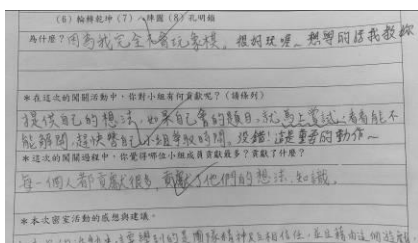 (6) 輪轉乾坤 (7) 八陣圖 (8) 孔明鎖
為什麼？因為我完全不會玩象棋。很好玩喔~ 想學的話我教你
*在這次的闖關活動中，你對小組有何貢獻呢？(請條列)
提供自己的想法，如果自己會的題目，就馬上嘗試，看看能不
能解開，趕快替自己小組爭取時間，沒錯！這是重要的動作~
*這次的闖關過程中，你覺得哪位小組成員貢獻最多？貢獻了什麼？
每一個人都貢獻很多，貢獻了他們的想法、知識。
*本次密室活動的感想與建議。